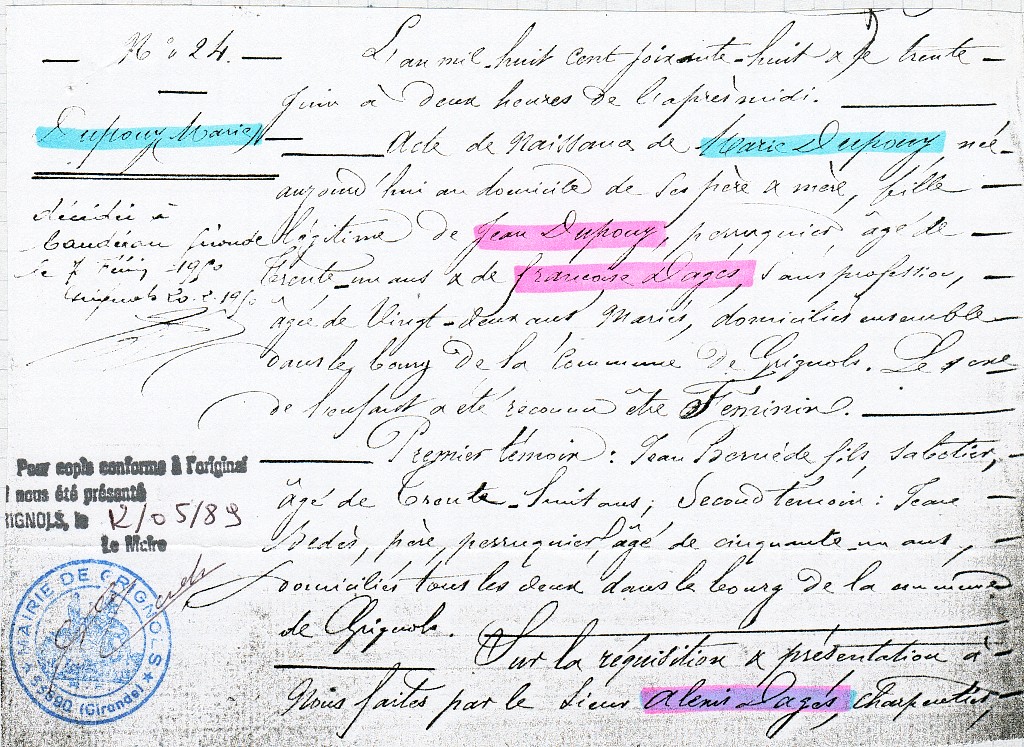 N° 24.
Dupouy, Marie
décédée à
Caudéran Gironde
le 7 1950
Grignols 20. 2. 1950
L'an mil-huit cent soixante-huit & le trente
Juin à deux heures de l'après midi.
Acte de Naissance de Marie Dupouy née
aujourd'hui au domicile de ses père & mère, fille
légitime de Jean Dupouy, perruquier, âgé de
trente-un ans & de françoise Dagès, sans profession,
âgée de Vingt-deux ans, Mariés, domiciliés ensemble
dans le bourg de la Commune de Grignols. Le sexe
de l'enfant a été reconnu être Féminin.
Premier témoin : Jean Bernède fils, sabotier,
âgé de Trente-huit ans; Second témoin : Jean
Bedès, père, perruquier, âgé de cinquante-un ans,
domiciliés tous les deux dans le bourg de la commune
de Grignols.
Sur la réquisition & présentation à
Nous faites par le Sieur Alexis Dagès, Charpentier,
Pour copie conforme à l'original
nous été présenté
RIGNOLS, le 12/05/89
Le Maire
MAIRIE DE GRIGNOLS ★ 33690 (Gironde) ★